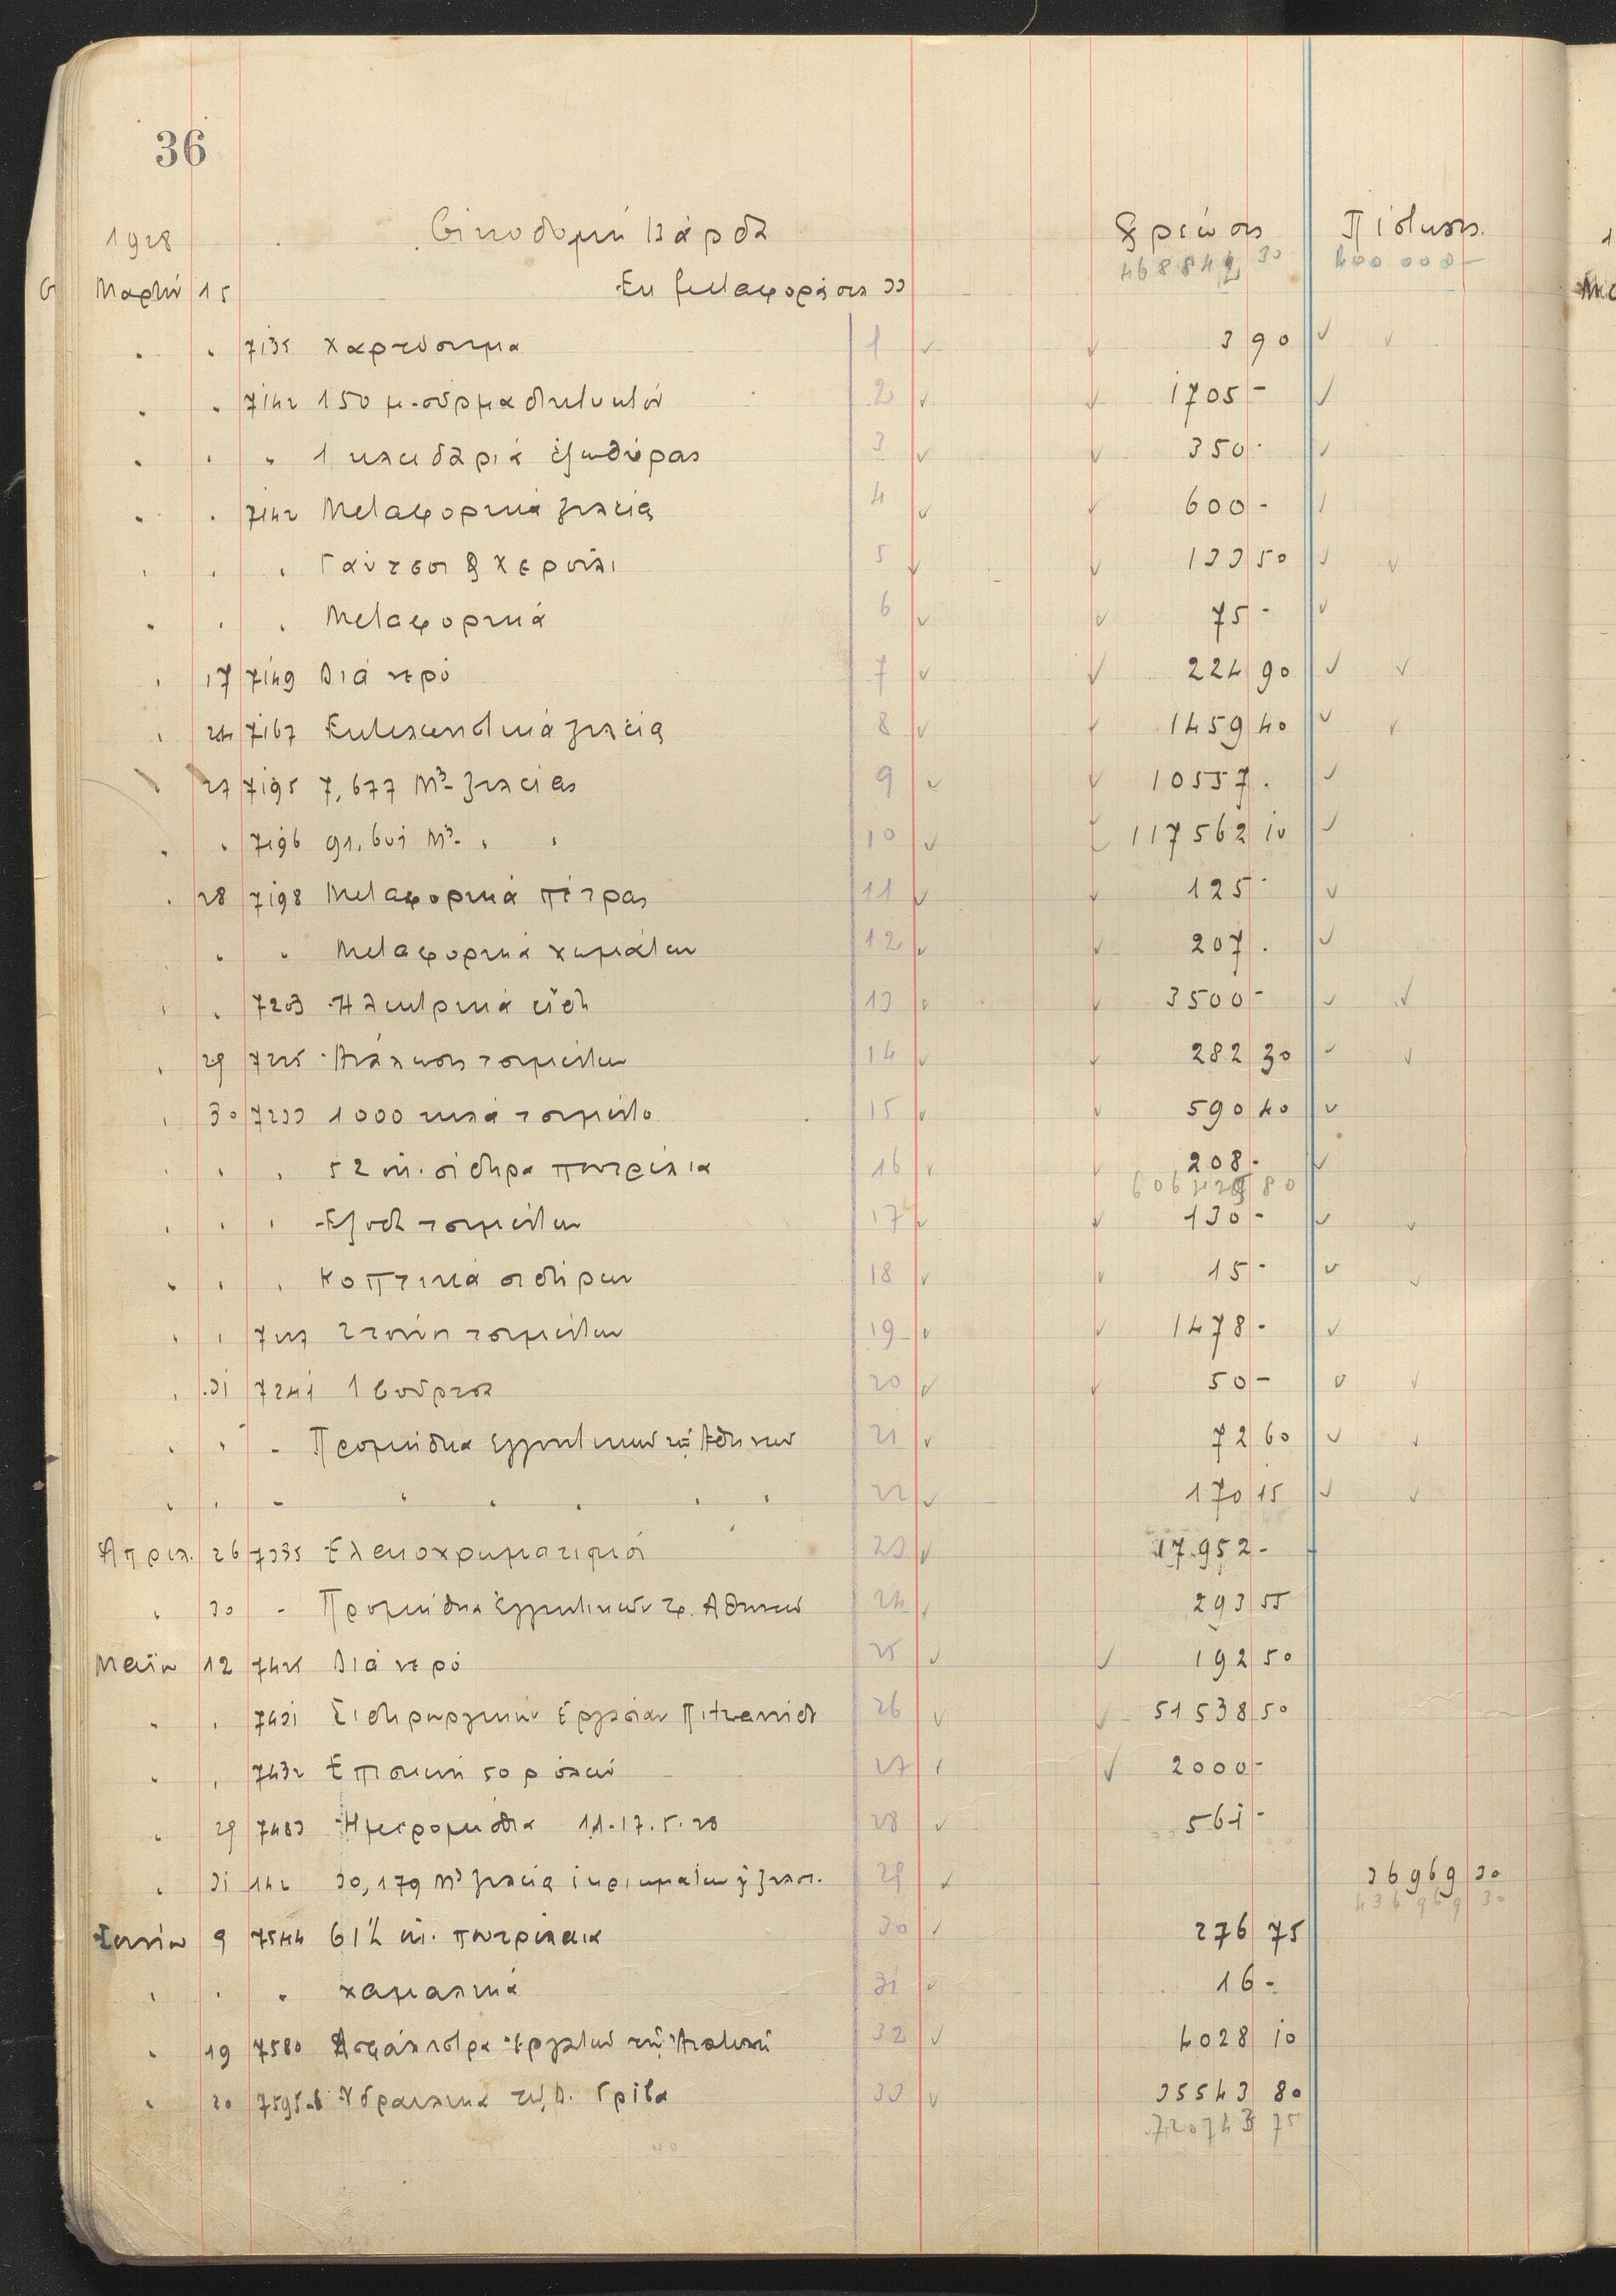 36
1928 Οικοδομή Βάρδα Χρέωσις Πίστωσις
468842 30 400000-
Μαρτίου 15 Εκ μεταφοράς σελ 33
" " 7135 Χαρτόσημα 1 3 90
" " 7142 150 μ. σύρμα δικτυωτόν 2 1705-
" " " 1 κλειδαριά εξωθύρας 3 350-
" " 7142 Μεταφορικά ξυλεία 4 600-
" " " Γάντζοι & χερούλι 5 133 50
" " " Μεταφορικά 6 75-
" 17 7149 Διά νερό 7 224 90
" 24 7167 Εκτελωνιστικά ξυλεία 8 1459 40
" 27 7195 7,677 Μ3 ξυλείας 9 10557.
" " 7196 91,601 Μ3 " " 10 117562 10
" 28 7198 Μεταφορικά πέτρας 11 125-
" " Μεταφορικά χωμάτων 12 207.
" " 7203 Ηλεκτρικά είδη 13 3500-
" 29 7225 τσιμέντων 14 282 30
" 30 7233 1000 κιλά τσιμέντο 15 590 40
" " " 52 οκ. σίδηρα ποτρέλια 16 208-
" " " Έξοδα τσιμέντων 17 130-
" " " Κοπτικά σιδήρων 18 15-
" " 7237 τσιμέντων 19 1478-
" 31 7241 1 βούρτσα 20 50-
" " - Προμήθεια εγγυητικών Αθηνών 21 72 60
" " - " " " " " 22 170 15
Απριλ. 26 7335 Ελαιοχρωματισμοί 23 17.952-
" 30 - Προμήθεια εγγυητικών Τρ. Αθηνών 24 293 55
Μαΐου 12 7425 Διά νερό 25 192 50
" " 7431 Σιδηρουργικών εργασιών 26 51538 50
" " 7432 Επισκευή 50 ρόλων 27 2000-
" 29 7483 Ημερομίσθια 11-17.5.28 28 561-
" 31 142 30,179 Μ3 ξυλεία ικριωμάτων 29 36969 30
436969 30
Ιουνίου 9 7544 61½ οκ. ποτρέλια 30 276 75
" " " χαμαλικά 31 16-
" 19 7580 Ασφάλιστρα εργατών 32 4028 10
" 20 7595-6 Υδραυλικά Γρίβα 33 35543 80
720743 75